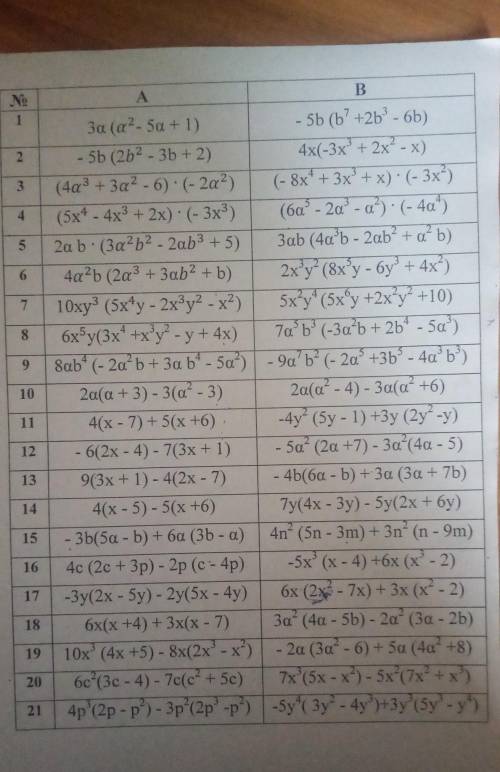 № A B
1 3a (a² - 5a + 1) - 5b (b⁷ +2b³ - 6b)
2 - 5b (2b² - 3b + 2) 4x(-3x³ + 2x² - x)
3 (4a³ + 3a² - 6) · (- 2a²) (- 8x⁴ + 3x³ + x) · (- 3x²)
4 (5x⁴ - 4x³ + 2x) · (- 3x³) (6a⁵ - 2a³ - a²) · (- 4a⁴)
5 2a b · (3a²b² - 2ab³ + 5) 3ab (4a³b - 2ab² + a² b)
6 4a²b (2a³ + 3ab² + b) 2x³y² (8x⁵y - 6y³ + 4x²)
7 10xy³ (5x⁴y - 2x³y² - x²) 5x²y⁴ (5x⁶y +2x²y² +10)
8 6x⁵y(3x⁴ +x³y² - y + 4x) 7a⁵b³ (-3a²b + 2b⁴ - 5a³)
9 8ab⁴ (- 2a²b + 3a b⁴ - 5a²) - 9a⁷b² (- 2a⁵ +3b⁵ - 4a³b³)
10 2a(a + 3) - 3(a² - 3) 2a(a² - 4) - 3a(a² +6)
11 4(x - 7) + 5(x +6) -4y² (5y - 1) +3y (2y² -y)
12 - 6(2x - 4) - 7(3x + 1) - 5a² (2a +7) - 3a²(4a - 5)
13 9(3x + 1) - 4(2x - 7) - 4b(6a - b) + 3a (3a + 7b)
14 4(x - 5) - 5(x +6) 7y(4x - 3y) - 5y(2x + 6y)
15 - 3b(5a - b) + 6a (3b - a) 4n² (5n - 3m) + 3n² (n - 9m)
16 4c (2c + 3p) - 2p (c - 4p) -5x³ (x - 4) +6x (x³ - 2)
17 -3y(2x - 5y) - 2y(5x - 4y) 6x (2x² - 7x) + 3x (x² - 2)
18 6x(x +4) + 3x(x - 7) 3a² (4a - 5b) - 2a² (3a - 2b)
19 10x³ (4x +5) - 8x(2x³ - x²) - 2a (3a² - 6) + 5a (4a² +8)
20 6c²(3c - 4) - 7c(c² + 5c) 7x³(5x - x²) - 5x²(7x² + x³)
21 4p³(2p - p²) - 3p²(2p³ -p²) -5y⁴( 3y² - 4y³)+3y³(5y³ - y⁴)